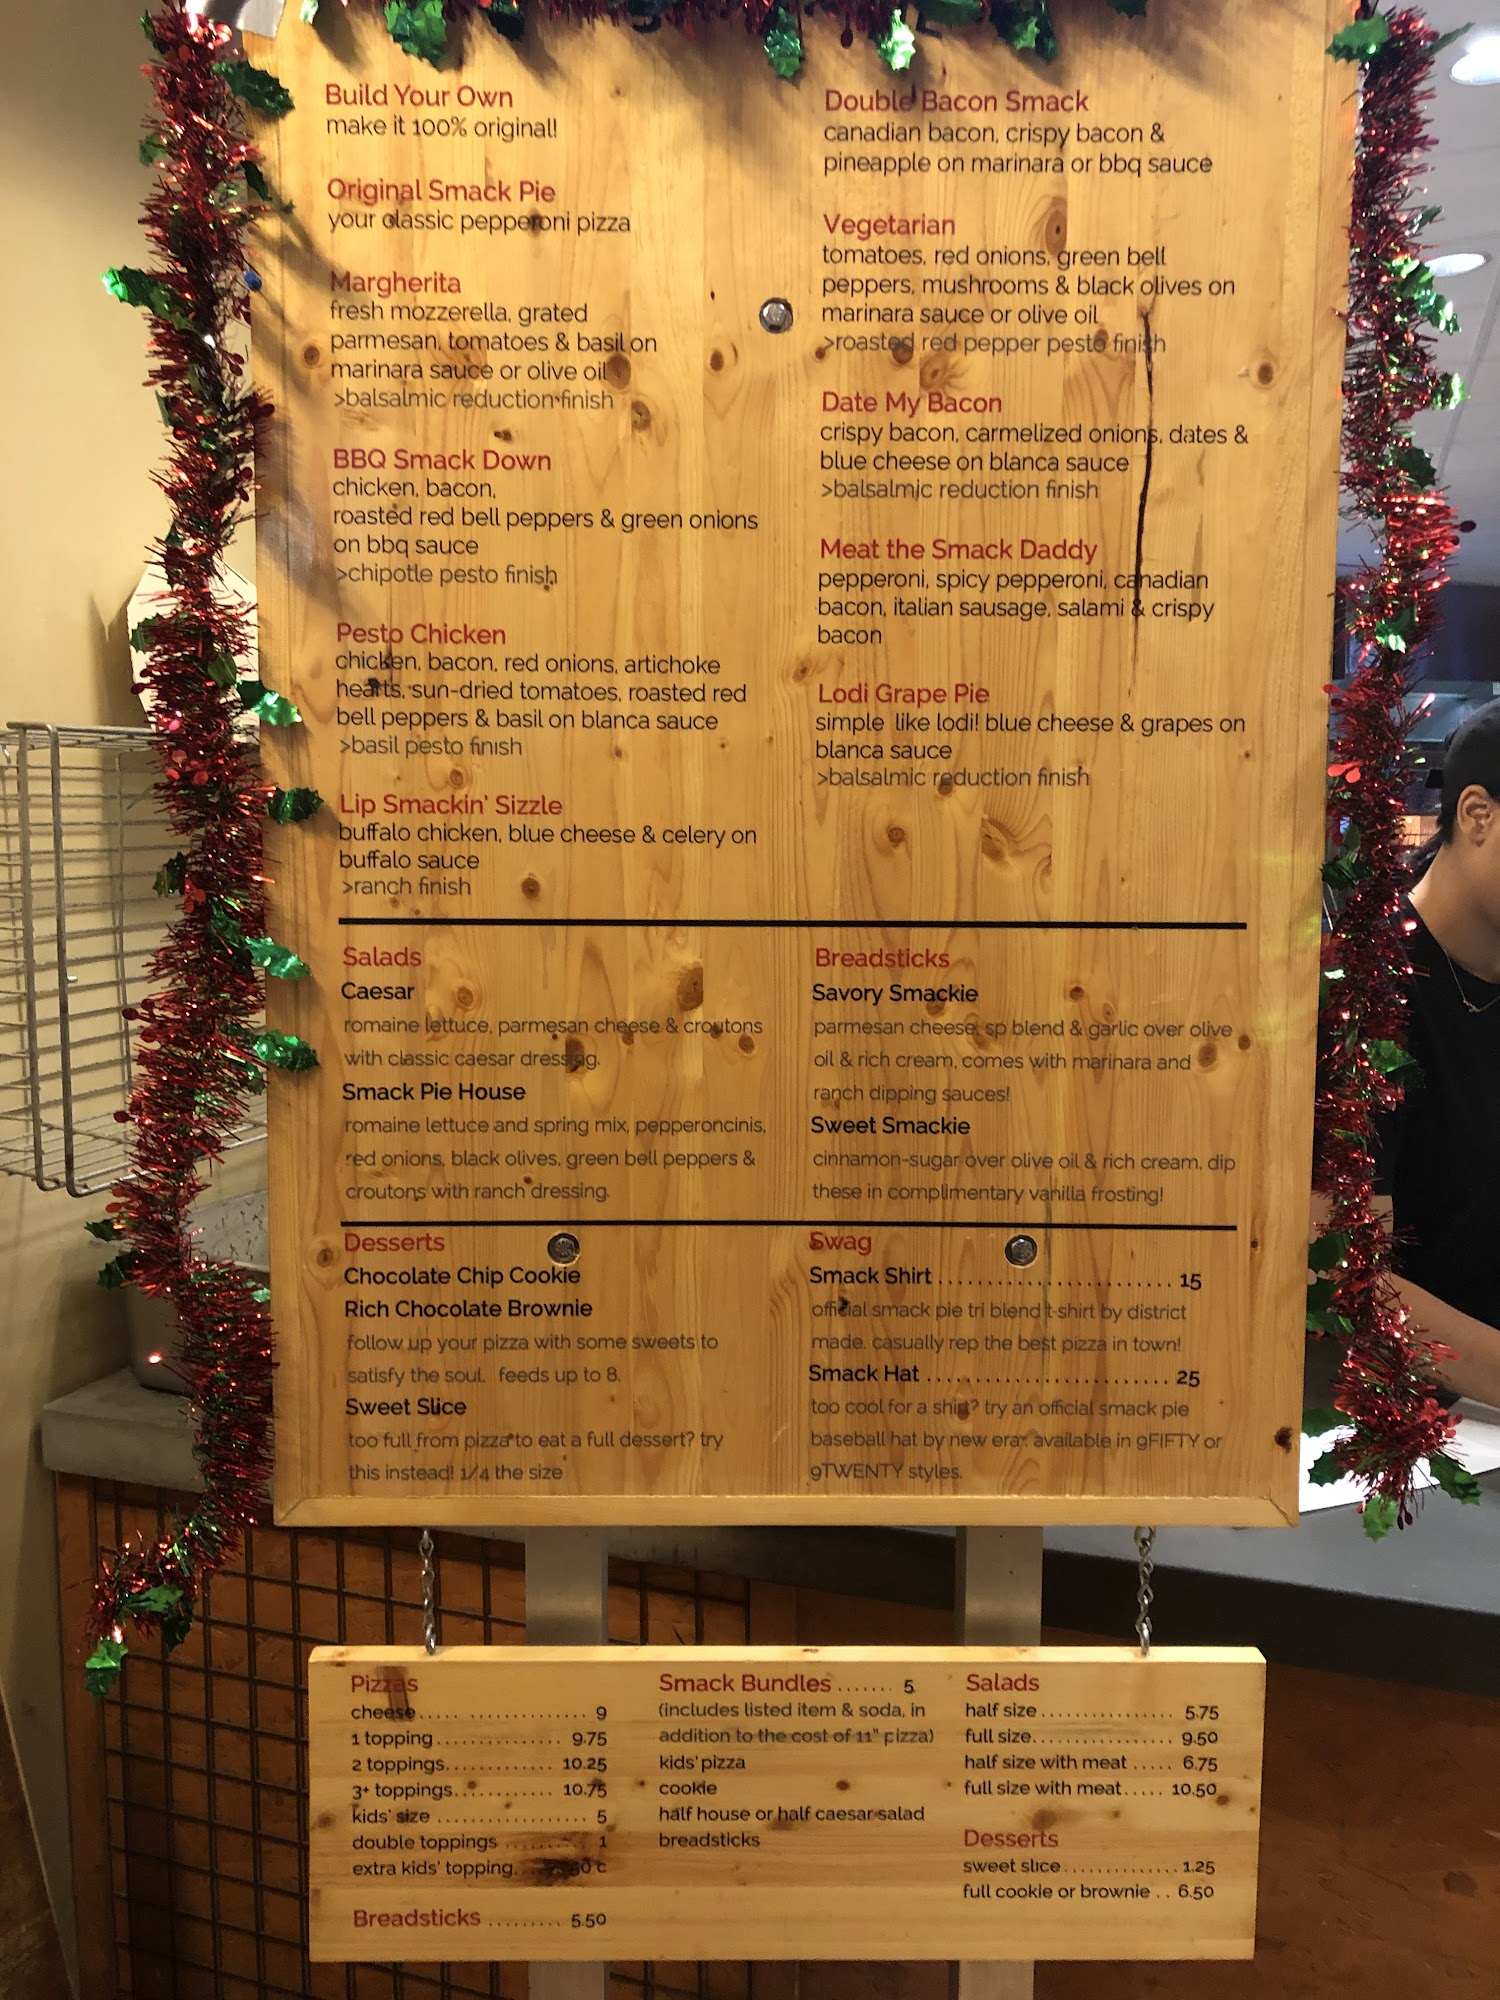 Build Your Own
make it 100% original!
Original Smack Pie
your classic pepperoni pizza
Margherita
fresh mozzerella, grated
parmesan, tomatoes & basil on
marinara sauce or olive oil
>balsalmic reduction finish
BBQ Smack Down
chicken, bacon,
roasted red bell peppers & green onions
on bbq sauce
>chipotle pesto finish
Pesto Chicken
chicken, bacon, red onions, artichoke
hearts, sun-dried tomatoes, roasted red
bell peppers & basil on blanca sauce
>basil pesto finish
Lip Smackin' Sizzle
buffalo chicken, blue cheese & celery on
buffalo sauce
>ranch finish
Double Bacon Smack
canadian bacon, crispy bacon &
pineapple on marinara or bbq sauce
Vegetarian
tomatoes, red onions, green bell
peppers, mushrooms & black olives on
marinara sauce or olive oil
>roasted red pepper pesto finish
Date My Bacon
crispy bacon, carmelized onions, dates &
blue cheese on blanca sauce
>balsalmic reduction finish
Meat the Smack Daddy
pepperoni, spicy pepperoni, canadian
bacon, italian sausage, salami & crispy
bacon
Lodi Grape Pie
simple like lodi! blue cheese & grapes on
blanca sauce
>balsalmic reduction finish
Salads
Caesar
romaine lettuce, parmesan cheese & croutons
with classic caesar dressing.
Smack Pie House
romaine lettuce and spring mix, pepperoncinis,
red onions, black olives, green bell peppers &
croutons with ranch dressing.
Breadsticks
Savory Smackie
parmesan cheese, sp blend & garlic over olive
oil & rich cream, comes with marinara and
ranch dipping sauces!
Sweet Smackie
cinnamon-sugar over olive oil & rich cream, dip
these in complimentary vanilla frosting!
Desserts
Chocolate Chip Cookie
Rich Chocolate Brownie
follow up your pizza with some sweets to
satisfy the soul. feeds up to 8.
Sweet Slice
too full from pizza to eat a full dessert? try
this instead! 1/4 the size
Swag
Smack Shirt ........................ 15
official smack pie tri blend t-shirt by district
made. casually rep the best pizza in town!
Smack Hat ......................... 25
too cool for a shirt? try an official smack pie
baseball hat by new era. available in 9FIFTY or
9TWENTY styles.
Pizzas
cheese .................... 9
1 topping ............... 9.75
2 toppings ............. 10.25
3+ toppings ............ 10.75
kids' size ................. 5
double toppings .......... 1
extra kids' topping
Breadsticks ......... 5.50
Smack Bundles ....... 5
(includes listed item & soda, in
addition to the cost of 11" pizza)
kids' pizza
cookie
half house or half caesar salad
breadsticks
Salads
half size ................. 5.75
full size .................. 9.50
half size with meat ..... 6.75
full size with meat ..... 10.50
Desserts
sweet slice .............. 1.25
full cookie or brownie .. 6.50